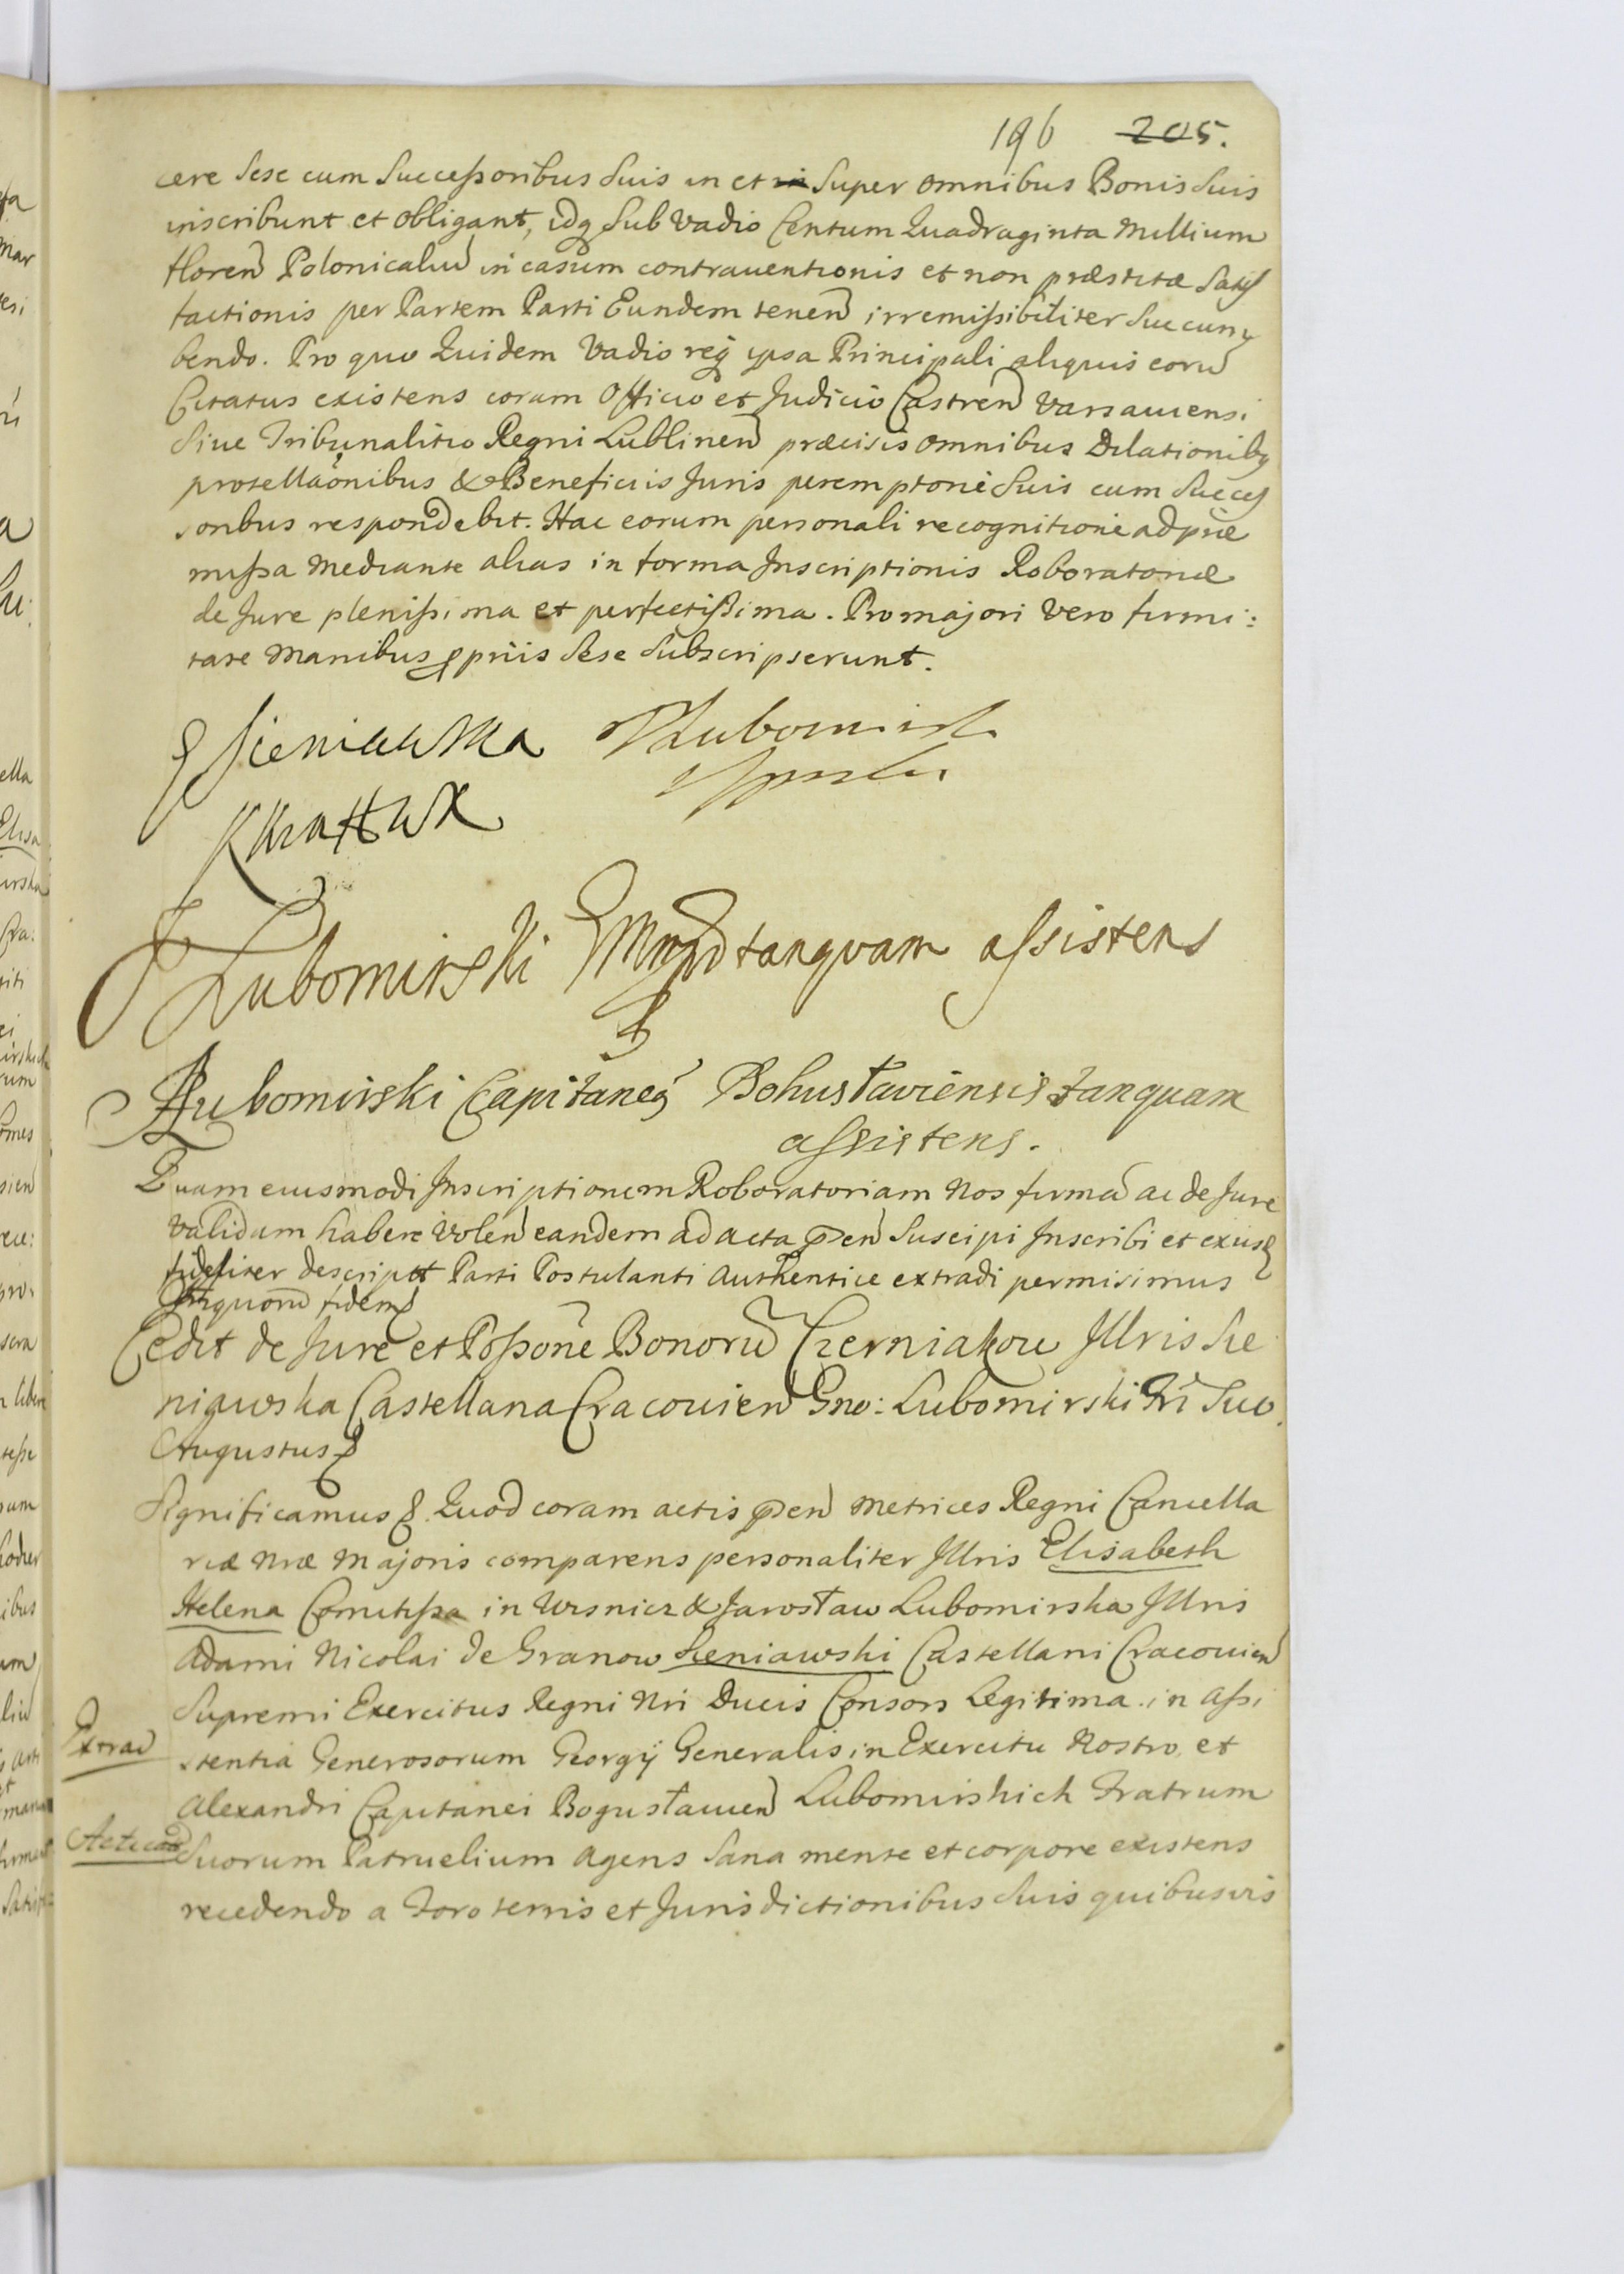 196 205.
cere Sese cum Successoribus Suis in et in Super omnibus Bonis Suis
inscribunt et obligant, idq Sub Vadio Centum Quadraginta Millium
floren Polonicaliu in casum contrauentionis et non præstitæ Satis
factionis per Partem Parti Eundem tenen irremissibiliter Succum
bendo. Pro quo Quidem Vadio req ipsa Principali aliquis eoru
Citatus existens coram Officio et Judicio Castren Varsauiensi
Siue Tribunalitio Regni Lublinen præcisis omnibus Dilationibq
protellaonibus & Beneficiis Juris peremptorie Suis cum Succes
soribus respondebit. Hac eorum personali recognitione ad præ
missa Mediante alias in forma Inscriptionis Roboratoriæ
de Jure plenissima et perfectissima. Pro majori Vero firmi:
tate Manibus ppriis Sese Subscripserunt.
E Sieniawska
Lubomirski
Lubomirski tanquam assistens
Lubomirski Capitaneq Bohusłaviensis tanquam
assistens.
Quam eiusmodi Inscriptionem Roboratoriam Nos firma ac de Jure
Validam habere Volen eandem ad acta pen Suscipi Inscribi et exius
fideliter descript Parti Postulanti Authentice extradi permisimus
Inquoru fidem
Cedit de Jure et Possone Bonoru Czerniakow Illris Sie
niawska Castellana Cracouien Gno: Lubomirski Fri Suo.
Augustus
Significamus Quod coram actis pen Metrices Regni Cancella
riæ Nræ Majoris comparens personaliter Illris Elisabeth
Helena Comitissa in Wisnicz & Jarosław Lubomirska Illris
Adami Nicolai de Granow Sieniawski Castellani Cracouien
Supremi Exercitus Regni Nri Ducis Consors Legitima in assi
stentia Generosorum Georgij Generalis in Exercitu Nostro et
Extrad
Alexandri Capitanei Bogusłauien Lubomirskich Fratrum
Suorum Patruelium agens Sana mente et corpore existens
recedendo a Foro terris et Jurisdictionibus Suis quibusvis